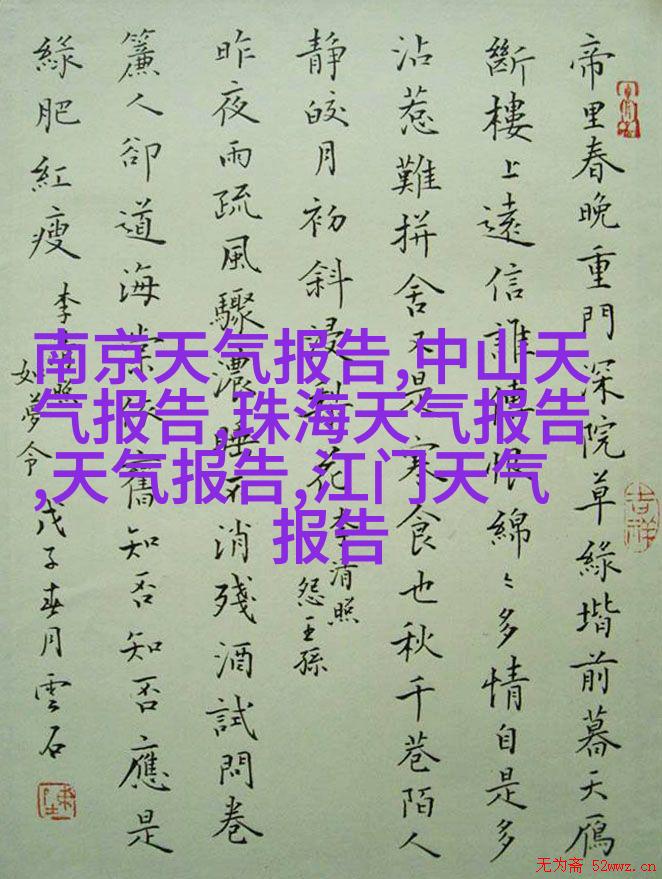 帝里春晚重門深院草綠堦前暮天鴈
斷樓上遠信誰傳恨綿〻多情自是多
沾惹難拼舍又是寒食也秋千巷陌人
靜皎月初斜浸梨花 李清照
怨王孫
昨夜雨疏風驟濃睡不消殘酒試問卷
簾人卻道海棠依舊知否知否應是
綠肥紅瘦 李清照
如夢令
戊子春月雲石
吉祥
南京天气报告,中山天
气报告,珠海天气报告
,天气报告,江门天气
报告
无为斋 52wwz.cn